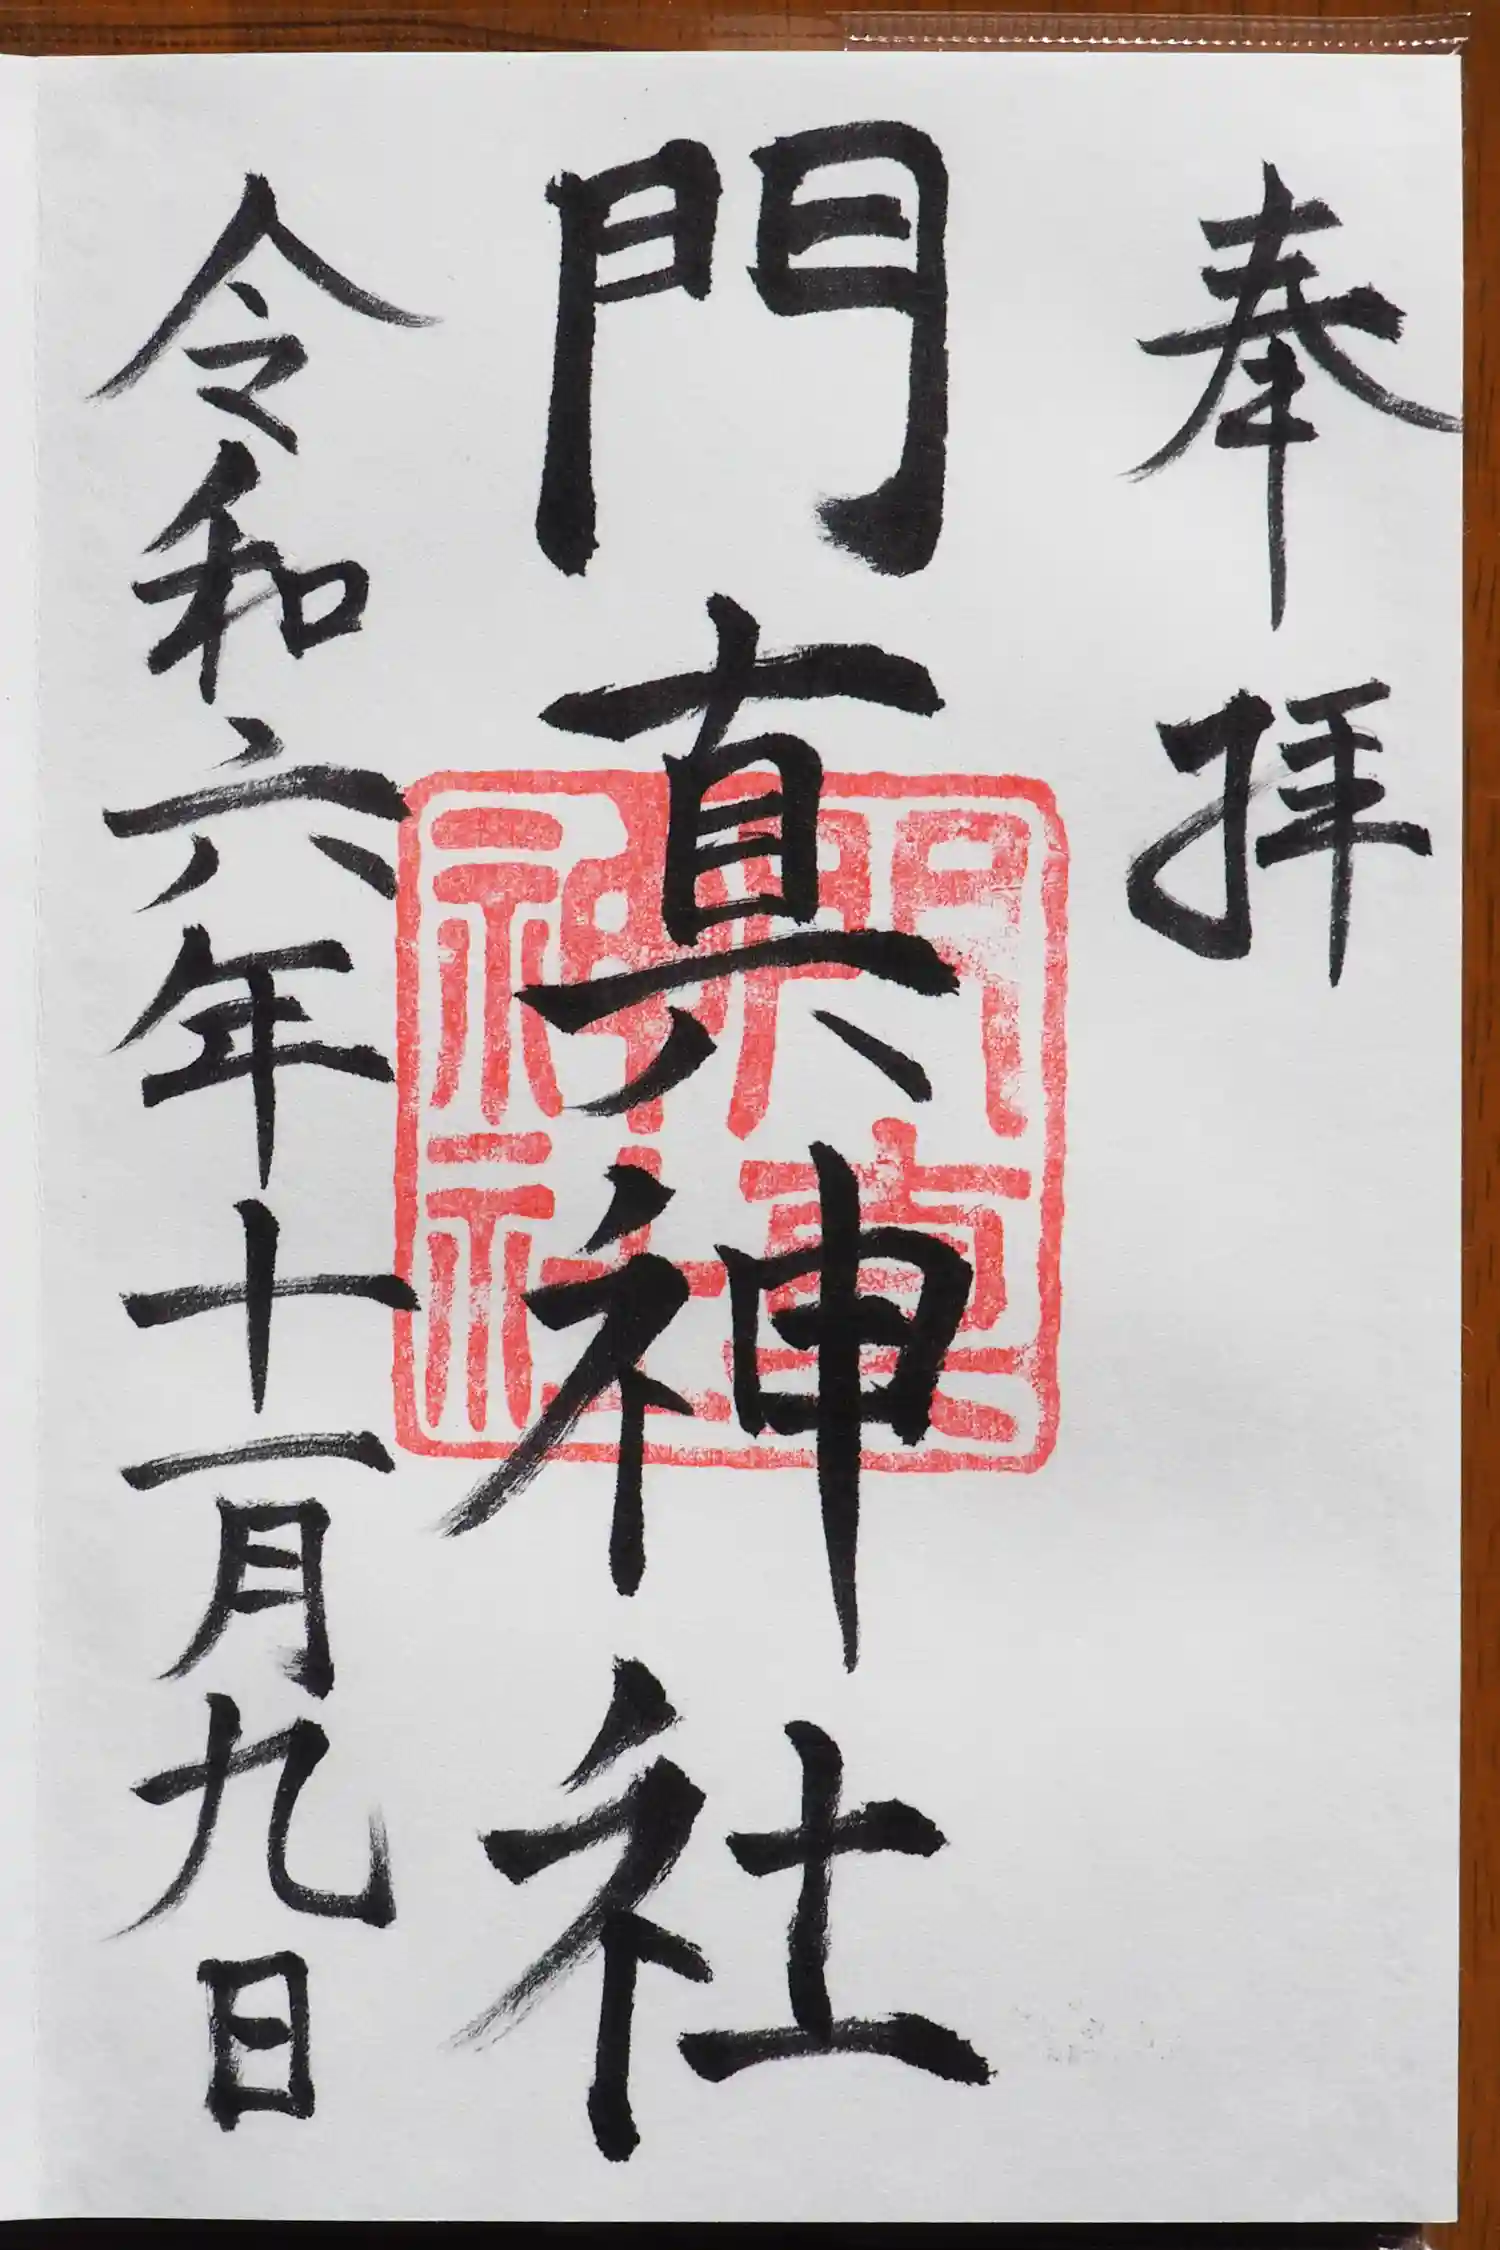 奉拝
門真神社
門真神社
令和六年十一月九日